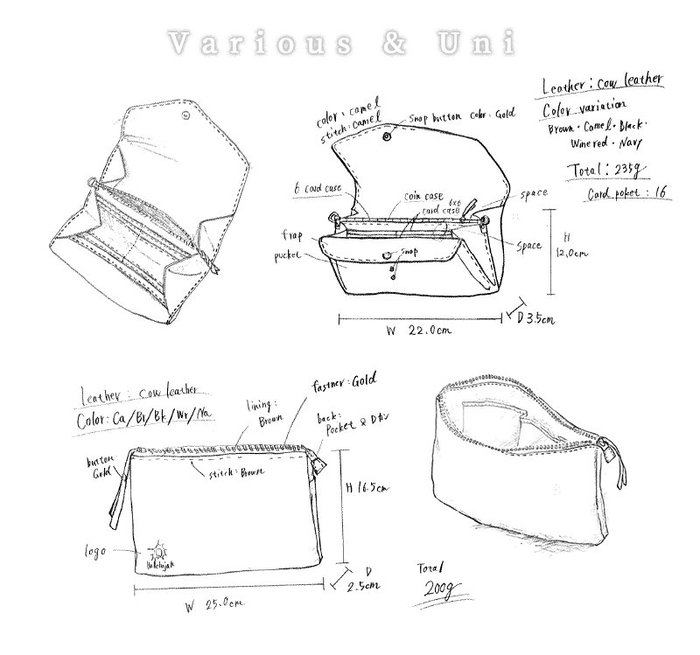 Various & Uni
Leather : cow leather
Color variation
Brown・Camel・Black・
Winered・Navy
Total : 235g
Card poket : 16
color : camel
stitch : camel
Snop button color : Gold
6 card case
coin case
6x6
card case
space
frap
pucket
snap
space
H
12.0cm
D 3.5cm
W 22.0cm
Leather : cow leather
Color : Ca/Br/Bk/Wr/Na
fastner : Gold
lining :
Brown
back :
Pocket & Dカン
button
Gold
stitch : Brown
H 16.5cm
logo
D
2.5cm
W 25.0cm
Total
200g